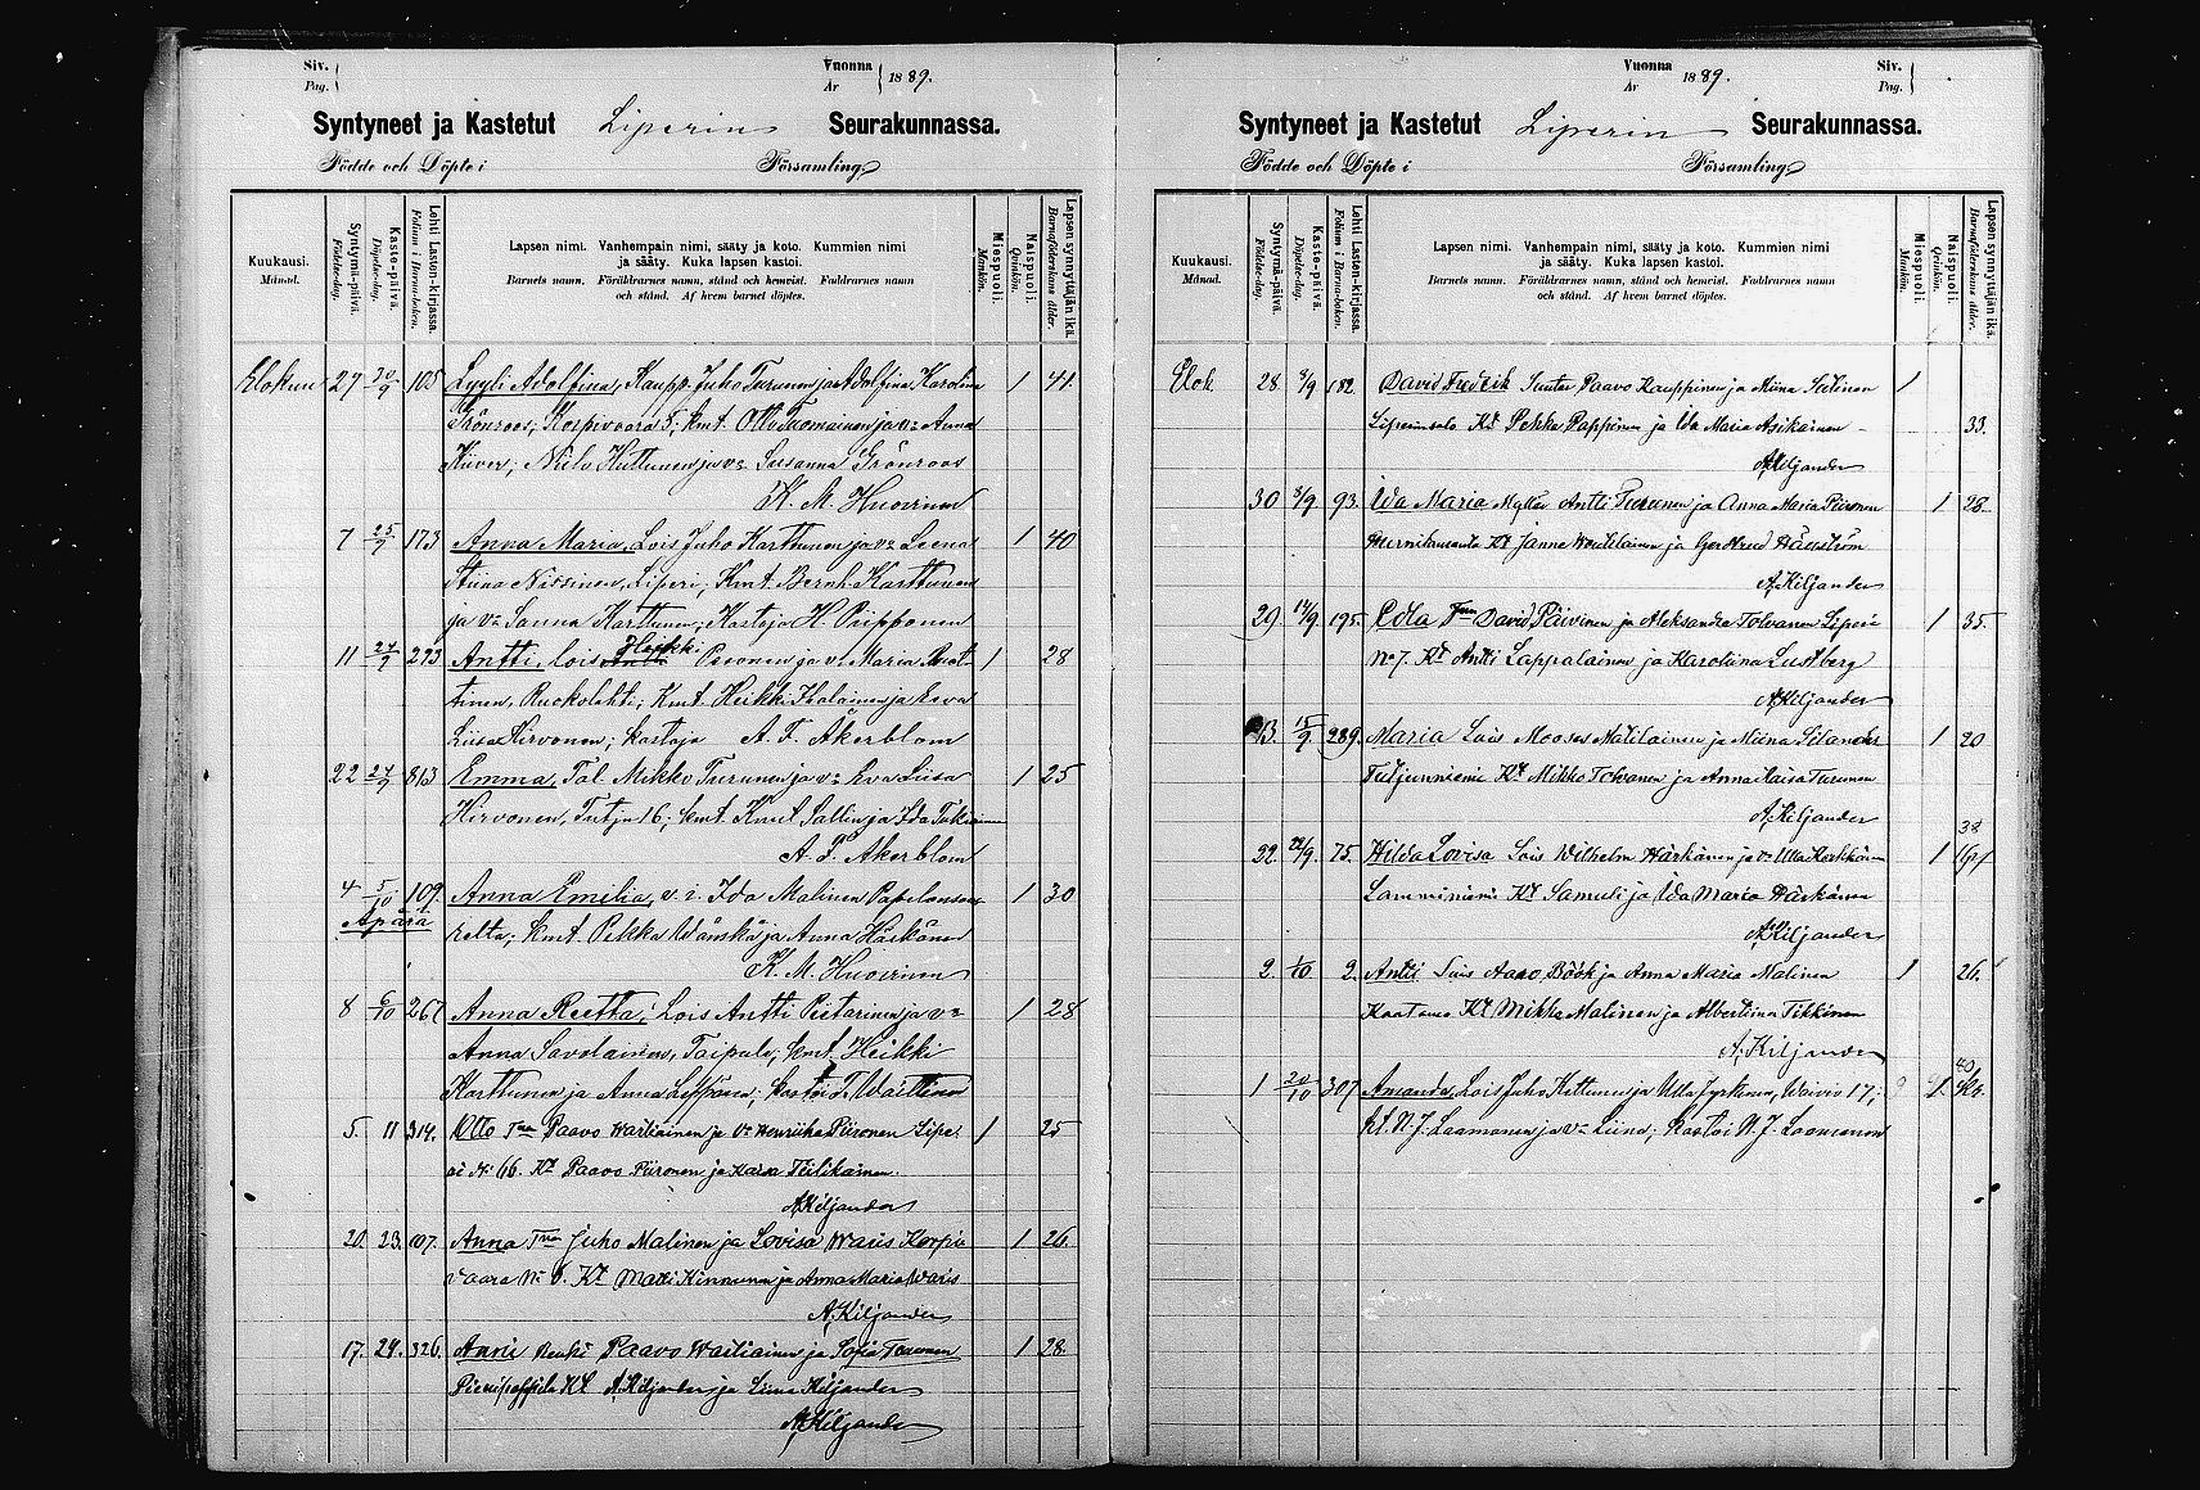 Siv.
Pag.
Vuonna
År
1889.
Syntyneet ja Kastetut Liperin Seurakunnassa.
Födde och Döpte i Församling.
Kuukausi.
Månad.
Syntymä-päivä.
Födelse-dag.
Kaste-päivä.
Döpelse-dag.
Lehti Lasten-kirjassa.
Folium i Barna-boken.
Lapsen nimi. Vanhempain nimi, sääty ja koto. Kummien nimi
ja sääty. Kuka lapsen kastoi.
Barnets namn. Föräldrarnes namn, stånd och hemvist. Faddrarnes namn
och stånd. Af hvem barnet döptes.
Miespuoli.
Mankön.
Naispuoli.
Qvinkön.
Lapsen synnyttäjän ikä.
Barnaföderskans ålder.
Elokuu 27 30/9 105 Lyyli Adolfina, Kaupp. Juho Turunen ja Adolfina Karolina 1 41.
Grönroos; Korpivaara 5; kmt. Otto Tuomainen ja v:o Anna
Kiiver; Niilo Huttunen ja v:o Susanna Grönroos
K. M. Huovinen
7 25/9 173 Anna Maria, Lois Juho Karttunen ja v:o Leena 1 40
Stiina Nissinen, Liperi; Kmt. Bernh. Karttunen
ja v:o Sanna Karttunen; Kastaja H. Piipponen
11 27/9 293 Antti, lois Heikki Pesonen ja v. Maria 1 28
tinen, Ruokolahti; Kmt. Heikki Ihalainen ja Eeva
Liisa Hirvonen; kastaja A. F. Åkerblom
22 27/9 813 Emma, Tal. Mikko Turunen ja v:o Eva Liisa 1 25
Hirvonen, Tutju 16; kmt. Knut Sallin ja Ida
A. F. Åkerblom
4 5/10 109. Anna Emilia, v. i. Ida Malinen 1 30
Äpärä
relta; kmt. Pekka Wänskä ja Anna Härkönen
K. M. Huovinen
8 6/10 267 Anna Reetta, Lois Antti Pietarinen ja v:o 1 28
Anna Savolainen, Taipale; kmt. Heikki
Karttunen ja Anna Leppänen; kastoi T. Waittinen
5. 11 314. Otto T:na Paavo Wartiainen ja V:o Henriika Piironen Lipe- 1 25
ri N:o 66. Kt Paavo Piironen ja Kaisa Teilikainen.
A. Kiljander
20. 23. 107. Anna T:nen Juho Malinen ja Lovisa Waris Korpi- 1 26.
vaara N:o 6. Kt Matti Kinnunen ja Anna Maria Waris
A. Kiljander
17. 29. 326. Anni Renki Paavo Wartiainen ja Sofia Turunen 1 28.
Pienipappila Kt A. Kiljander ja Liina Kiljander
A. Kiljander
Vuonna
År
1889.
Siv.
Pag.
Syntyneet ja Kastetut Liperin Seurakunnassa.
Födde och Döpte i Församling.
Kuukausi.
Månad.
Syntymä-päivä.
Födelse-dag.
Kaste-päivä.
Döpelse-dag.
Lehti Lasten-kirjassa.
Folium i Barna-boken.
Lapsen nimi. Vanhempain nimi, sääty ja koto. Kummien nimi
ja sääty. Kuka lapsen kastoi.
Barnets namn. Föräldrarnes namn, stånd och hemvist. Faddrarnes namn
och stånd. Af hvem barnet döptes.
Miespuoli.
Mankön.
Naispuoli.
Qvinkön.
Lapsen synnyttäjän ikä.
Barnaföderskans ålder.
Elok 28. 8/9 182. David Fredrik Suutar Paavo Kauppinen ja Miina Sutinen 1
Liperinsalo Kt Pekka Pappinen ja Ida Maria Asikainen 33.
A. Kiljander
30 8/9. 93. Ida Maria Mylläri Antti Turunen ja Anna Maria Piironen 1 28
Kt Janne Woutilainen ja Gerdtrud
A. Kiljander
29. 14/9. 195. Edla T:nen David Päivinen ja Aleksandra Tolvanen Liperi 1 35.
N:o 7. Kt Antti Lappalainen ja Karoliina Lustberg
A. Kiljander
13. 15/9. 289. Maria Lois Mooses Matilainen ja Miina Silander 1 20
Tutjunniemi Kt Mikko Tolvanen ja Anna Kaisa Turunen
A. Kiljander
38
22. 22/9. 75. Hilda Lovisa Lois Wilhelm Härkönen ja v:o Ulla 1
Lamminniemi Kt Samuli ja Ida Maria Härkönen
A. Kiljander
2. 1/10 2. Antti Lois Aaro Böök ja Anna Maria Malinen 1 26.
Kaatamo Kt Mikko Malinen ja Albertiina Tikkinen
A. Kiljander
40
1 20/10 307 Amanda, Lois Juho Kettunen ja Ulla Jyrkinen, Waivio 17; 1. kr.
kt. N. J. Laamanen ja v:o Liina; kastoi N. J. Laamanen